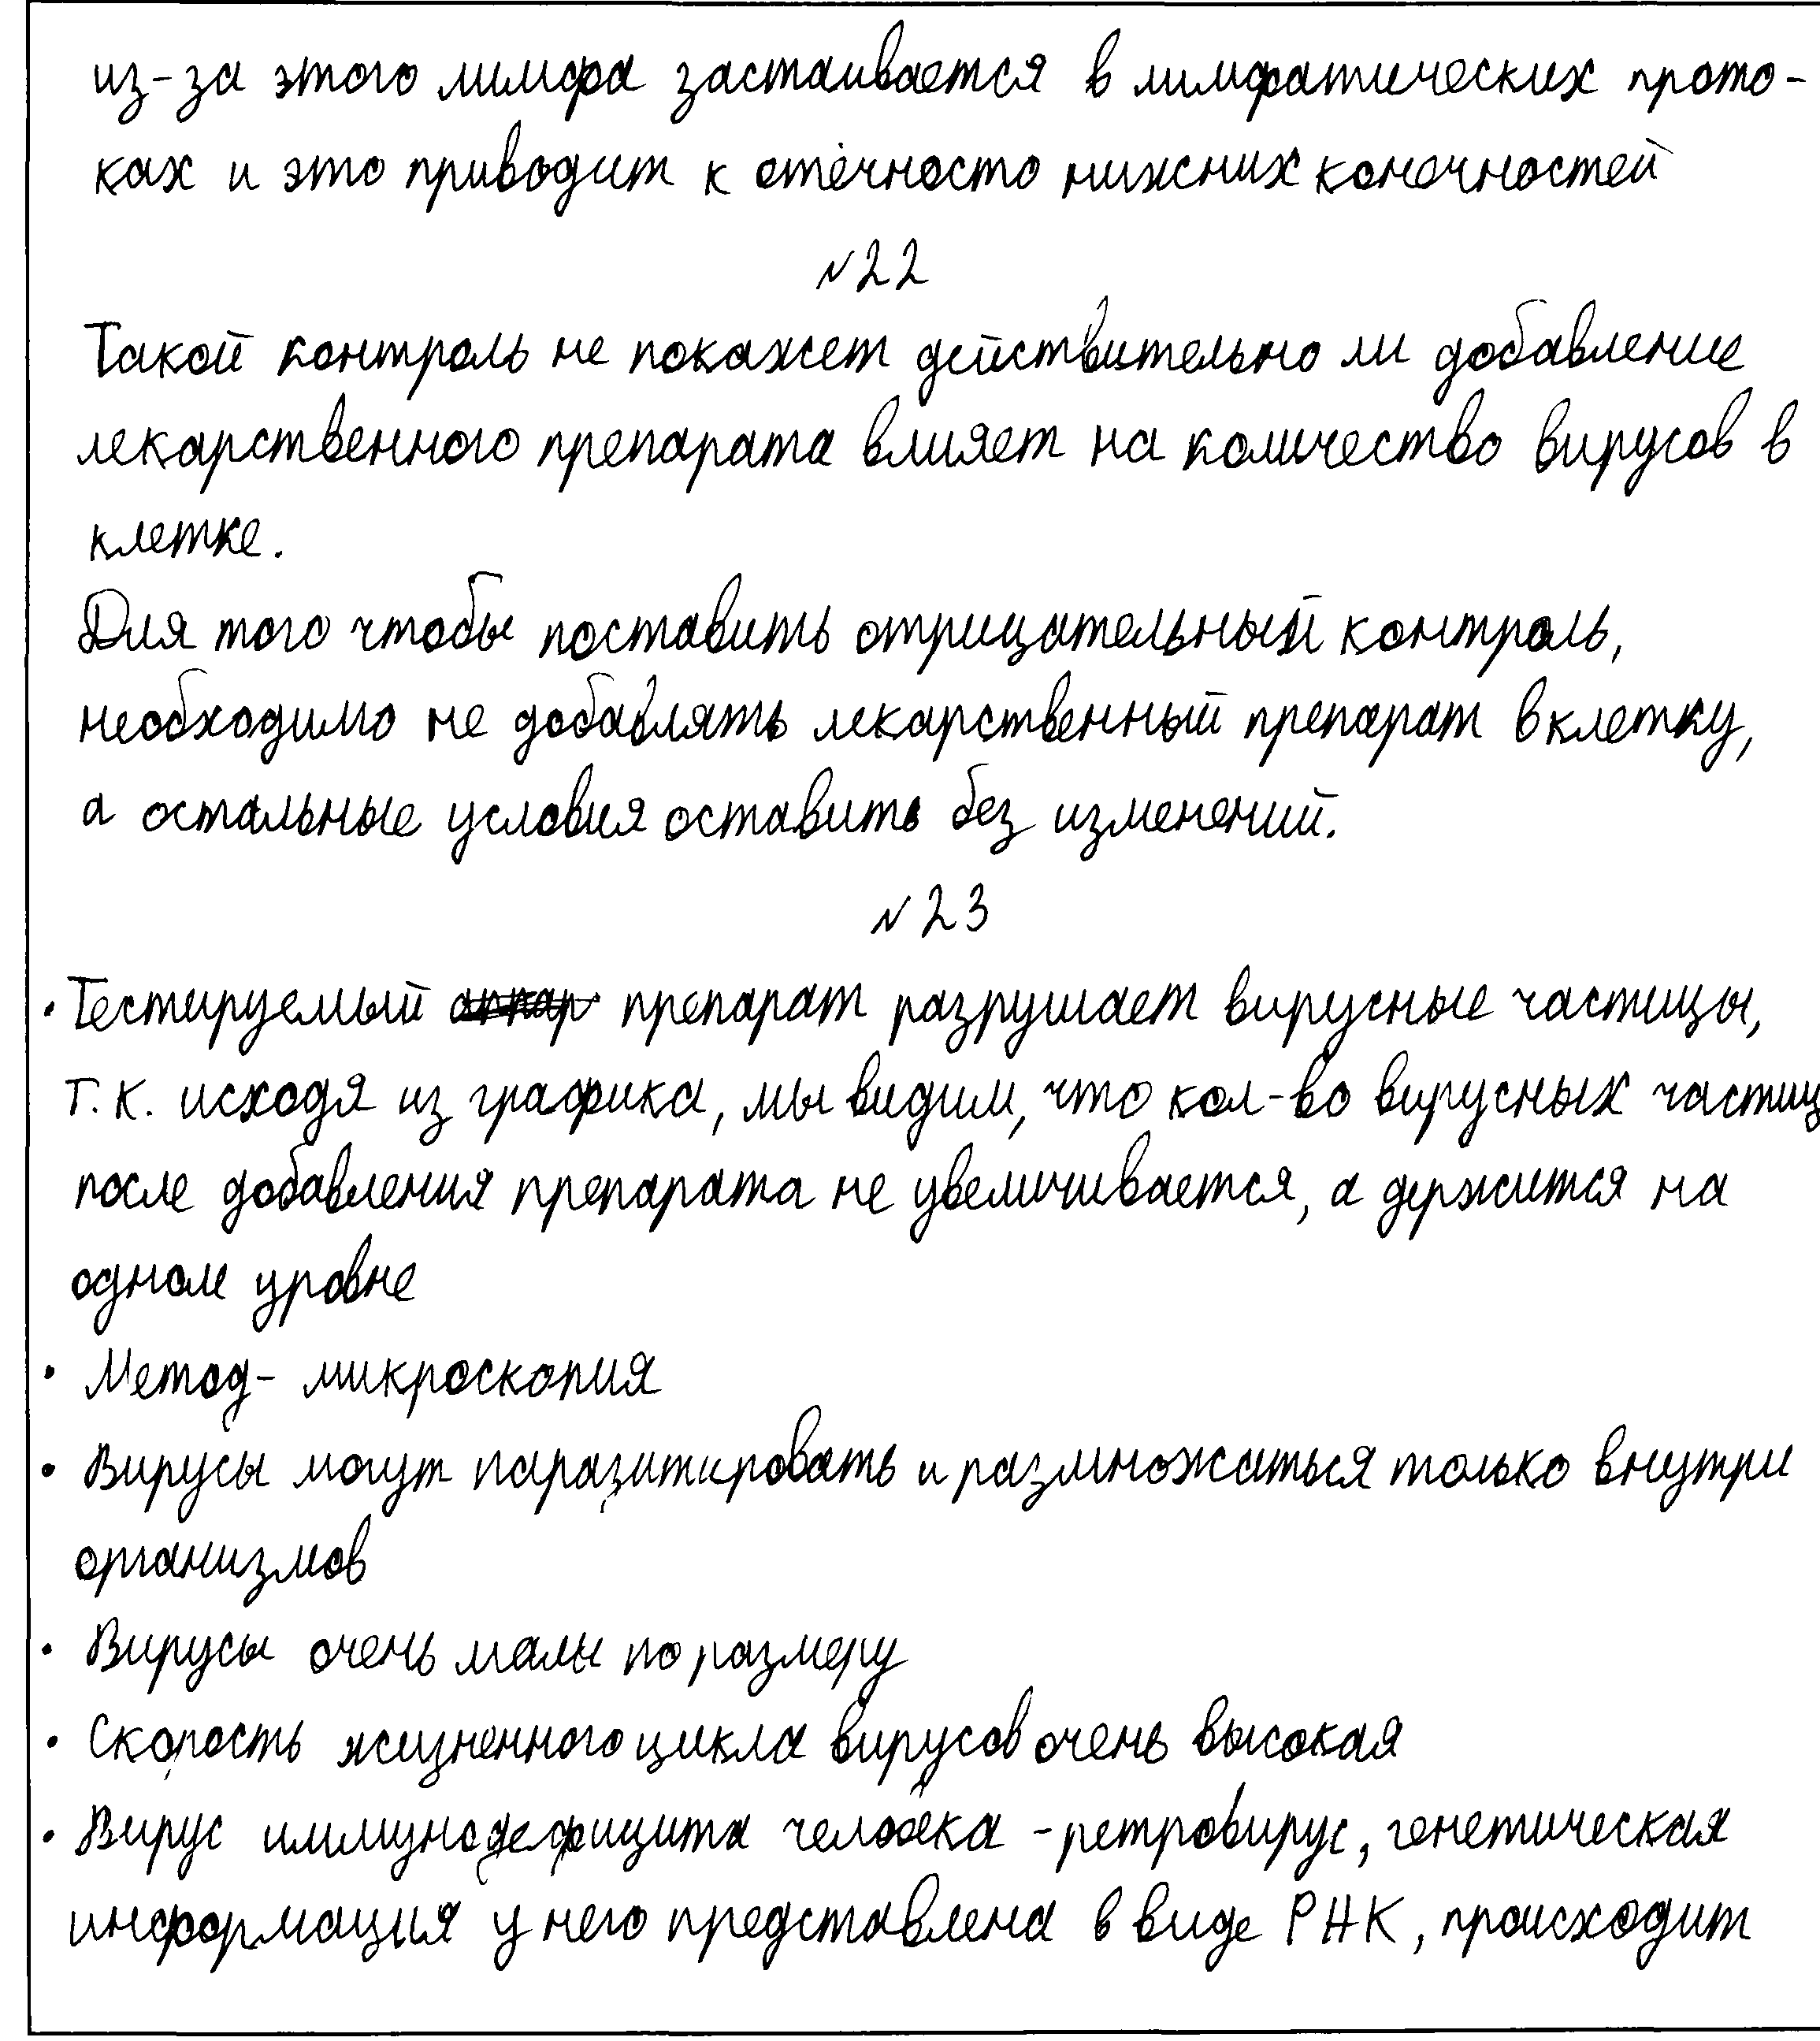 из-за этого лимфа застаивается в лимфатических прото-
ках и это приводит к отёчносто нижних конечностей
№22
Такой контроль не покажет действительно ли добавление
лекарственного препарата влияет на количество вирусов в
клетке.
Для того чтобы поставить отрицательный контроль,
необходимо не добавлять лекарственный препарат в клетку,
а остальные условия оставить без изменений.
№23
· Тестируемый препарат разрушает вирусные частицы,
т.к. исходя из графика, мы видим, что кол-во вирусных частиц
после добавления препарата не увеличивается, а держится на
одном уровне
· Метод - микроскопия
· Вирусы могут паразитировать и размножаться только внутри
организмов
· Вирусы очень малы по размеру
· Скорость жизненного цикла вирусов очень высокая
· Вирус иммунодефицита человека - ретровирус, генетическая
информация у него представлена в виде РНК, происходит